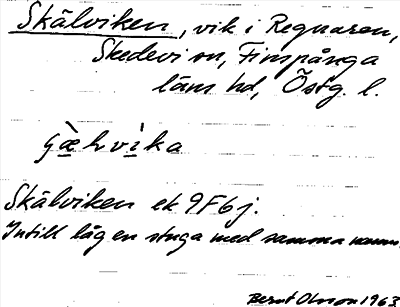 Skälviken, vik i Regnaren,
Skedevi sn, Finspånga
läns hd, Östg. l.
Skälviken ek 9F6j.
Intill låg en stuga med samma namn.
Bernt Olsson 1963